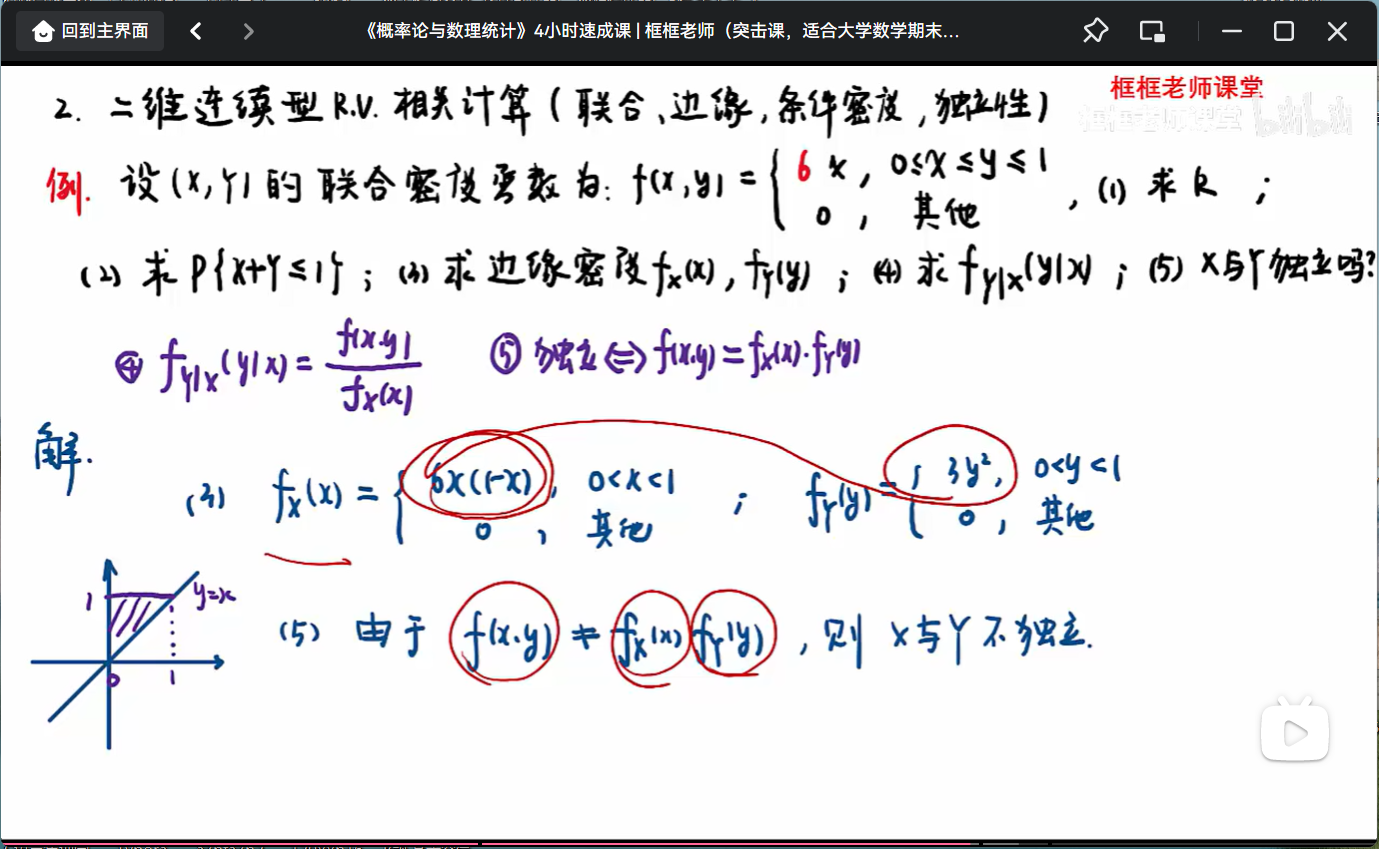 回到主界面
《概率论与数理统计》4小时速成课 | 框框老师（突击课，适合大学数学期末...
框框老师课堂
框框老师课堂 bilibili
2. 二维连续型 R.V. 相关计算 (联合、边缘, 条件密度, 独立性)
例. 设(X,Y)的联合密度函数为: f(x,y) = { 6x, 0≤x≤y≤1
0, 其他
, (1) 求 k ;
(2) 求 P{X+Y≤1} ; (3) 求边缘密度 fX(x), fY(y) ; (4) 求 fY|X(y|x) ; (5) X与Y独立吗?
④ fY|X(y|x) = f(x,y) / fX(x) ⑤ 独立⇔ f(x,y) = fX(x)·fY(y)
解.
(3) fX(x) = { 6x(1-x), 0<x<1
0, 其他
; fY(y) = { 3y², 0<y<1
0, 其他
1 y=x
0 1
(5) 由于 f(x,y) ≠ fX(x) fY(y) , 则 X与Y不独立.